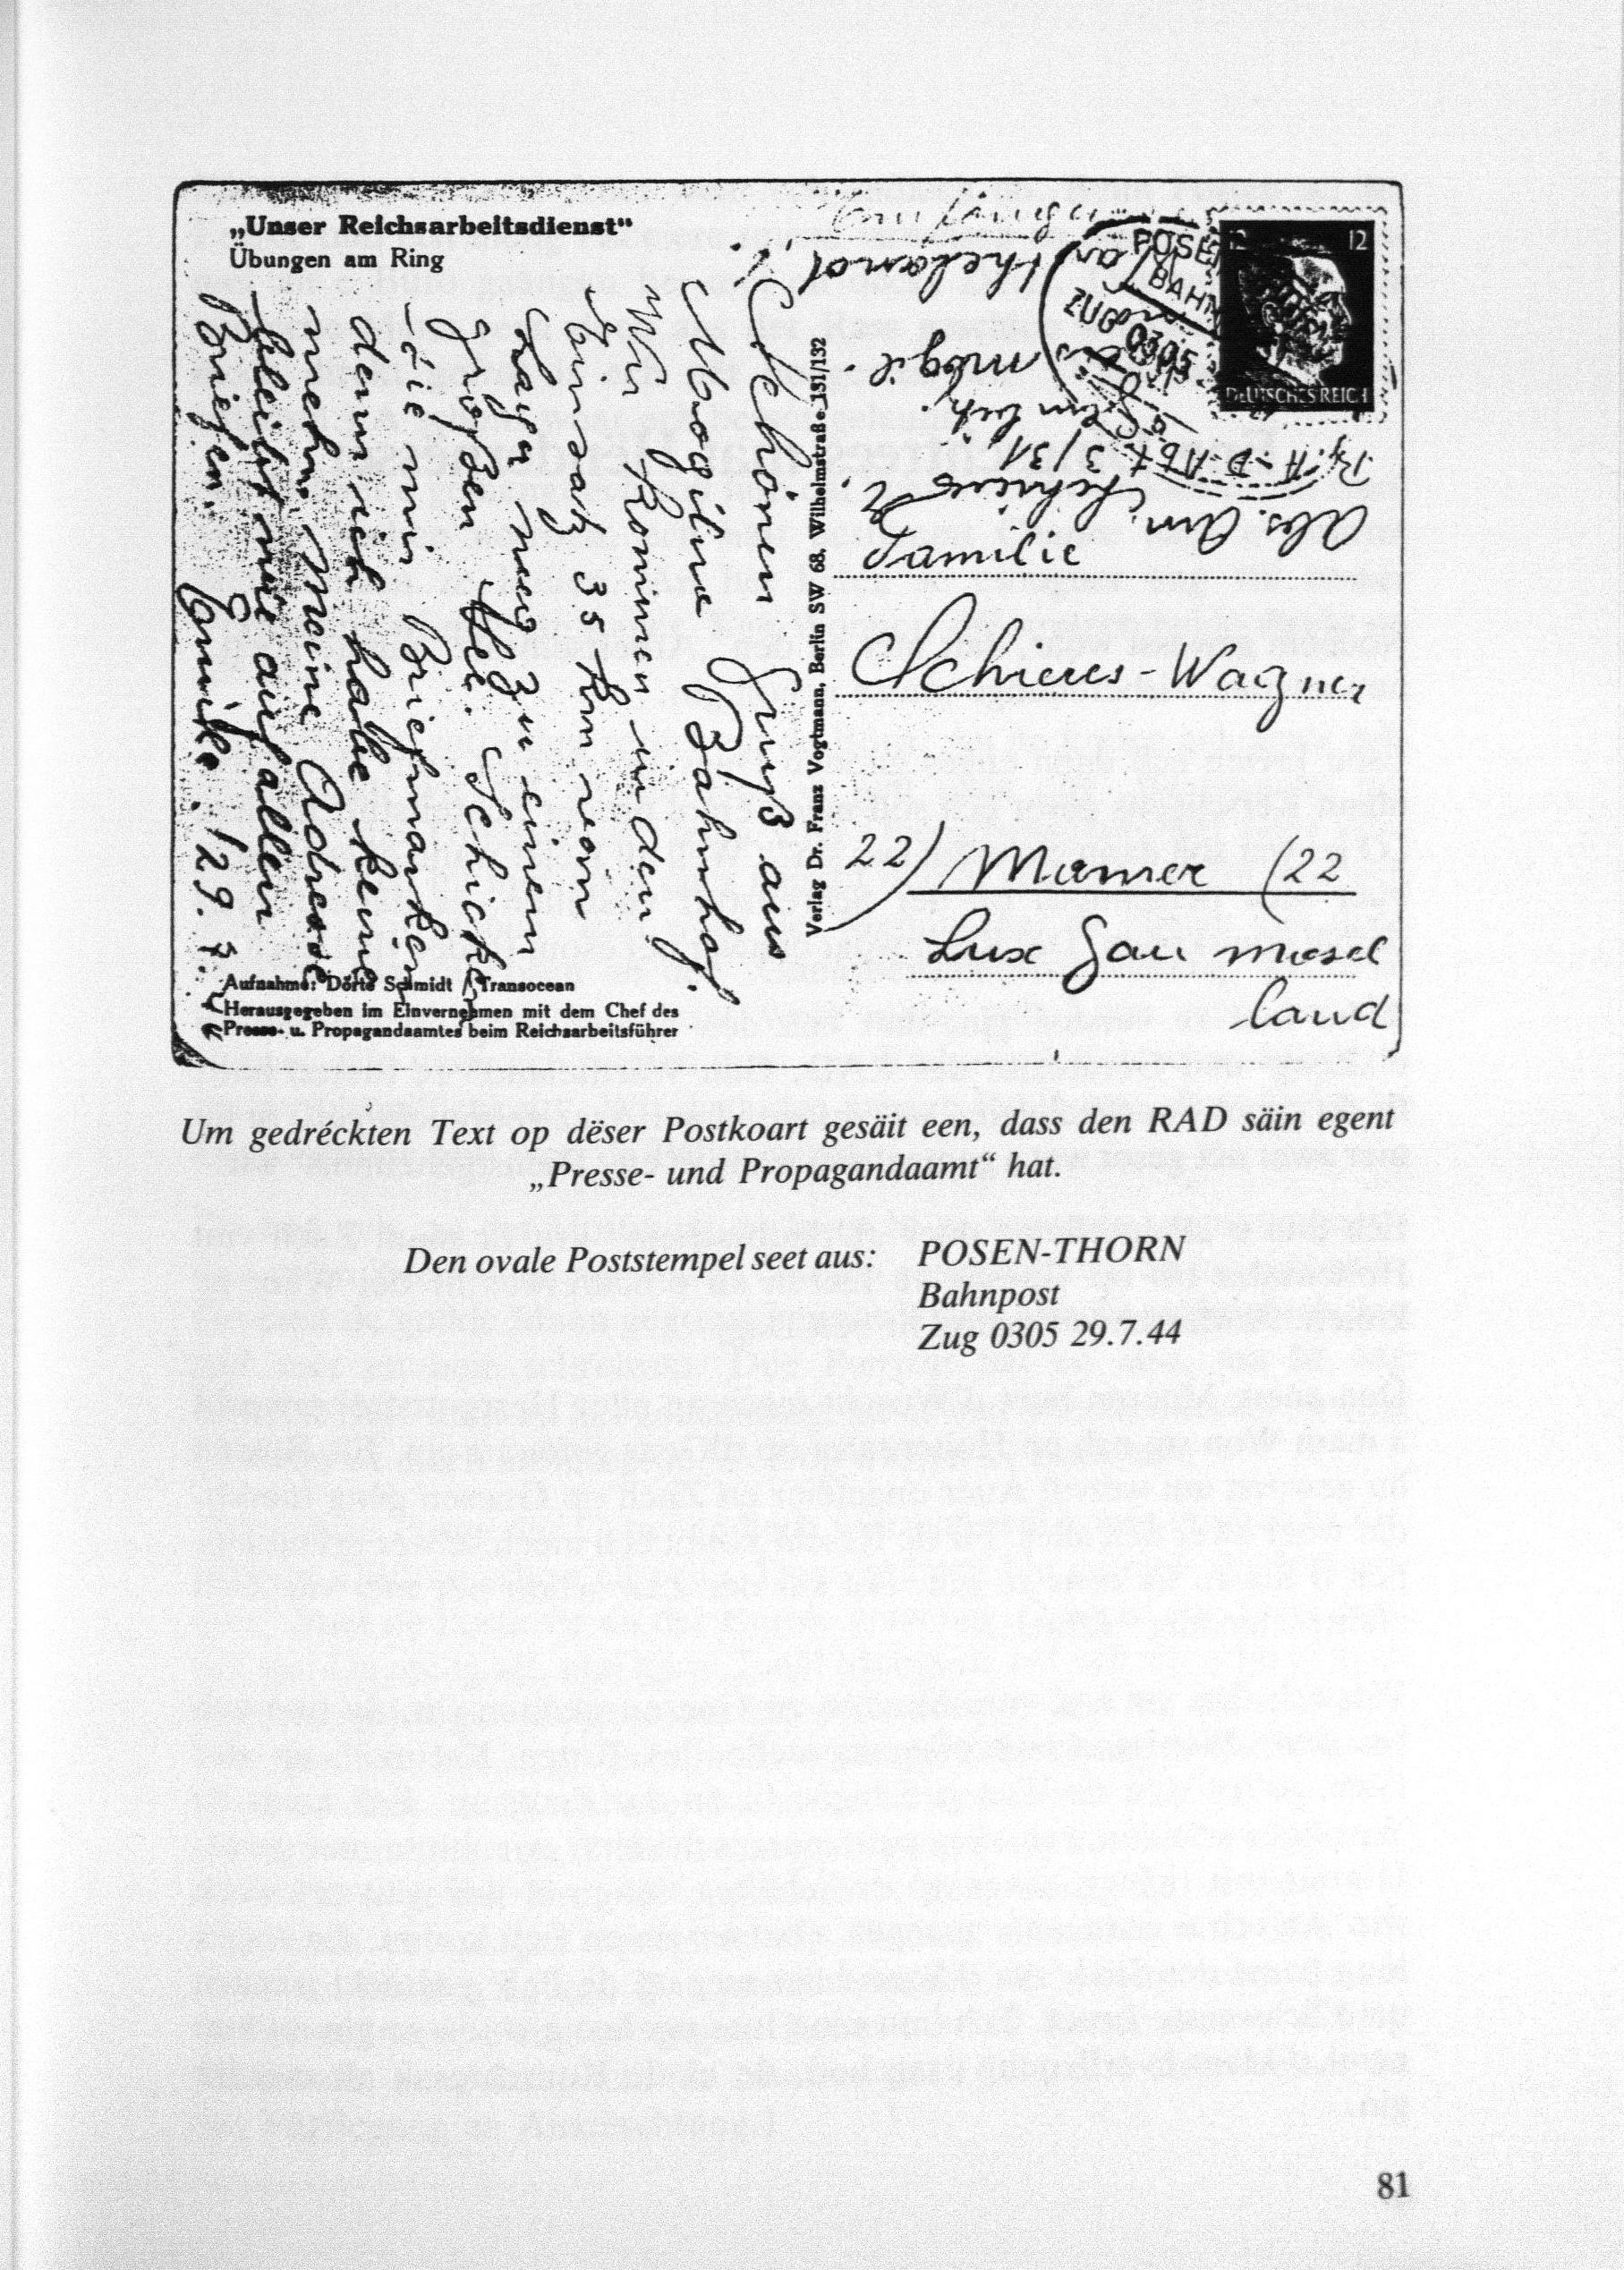 „Unser Reichsarbeitsdienst“
Übungen am Ring
Schönen Gruß aus
Mogilno Bahnhof.
Wir kommen in den
Einsatz 35 km von
Lager weg zu einem
großen Schickt
Sie mir Briefmarken
denn ich habe keine
mehr. Meine Adresse
bleibt wie auf allen
Briefen.
29. 7.
Aufnahme: Dörte Schmidt / Transocean
Herausgegeben im Einvernehmen mit dem Chef des
Presse- u. Propagandaamtes beim Reichsarbeitsführer
Verlag Dr. Franz Vogtmann, Berlin SW 68, Wilhelmstraße 131/132
POSEN
BAHN
ZUG 0305
12 12
DEUTSCHES REICH
Abs. Am.
R.A.D. Abt 3/31,
mogil.
Familie
Schieres-Wagner
22) Mamer (22
Lux Gau Mosel
land
Um gedréckten Text op dëser Postkoart gesäit een, dass den RAD säin egent
„Presse- und Propagandaamt“ hat.
Den ovale Poststempel seet aus: POSEN-THORN
Bahnpost
Zug 0305 29.7.44
81